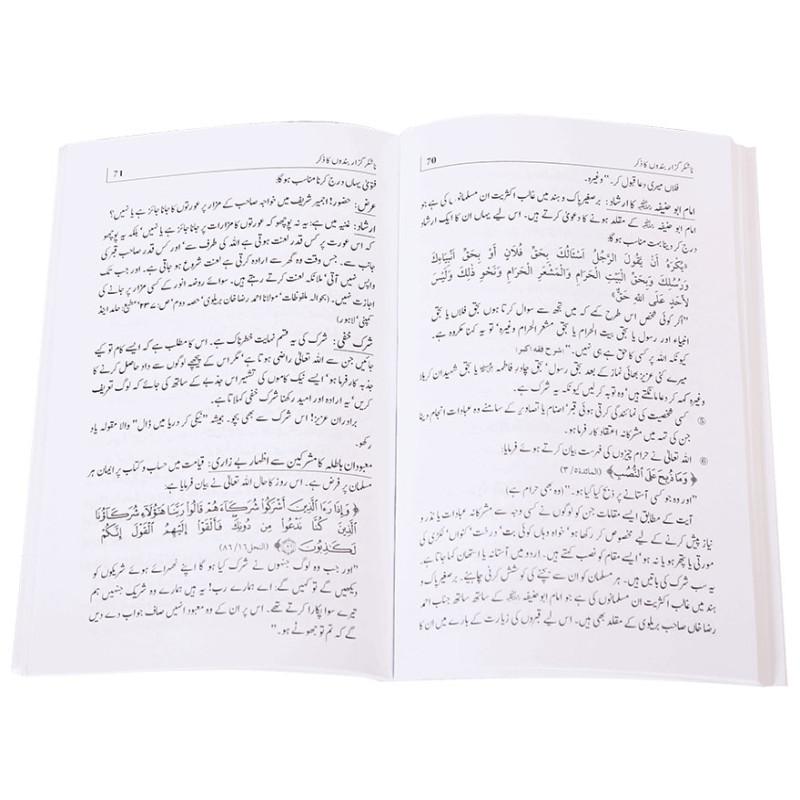 ناشکر گزار بندوں کا ذکر 70
فلاں میری دعا قبول کر۔" وغیرہ۔
امام ابو حنیفہ رحمۃ اللہ علیہ کا ارشاد: برصغیر پاک و ہند میں غالب اکثریت ان مسلمانوں کی ہے جو
امام ابو حنیفہ رحمۃ اللہ علیہ کے مقلد ہونے کا دعویٰ کرتے ہیں۔ اس لیے یہاں ان کا ایک ارشاد
درج کر دینا بہت مناسب ہو گا:
«يُكْرَهُ أَنْ يَقُولَ الرَّجُلُ أَسْأَلُكَ بِحَقِّ فُلَانٍ أَوْ بِحَقِّ أَنْبِيَاءِكَ
وَرُسُلِكَ وَبِحَقِّ الْبَيْتِ الْحَرَامِ وَالْمَشْعَرِ الْحَرَامِ وَنَحْوِ ذٰلِكَ وَلَيْسَ
لِأَحَدٍ عَلَى اللّٰهِ حَقٌّ»
"اگر کوئی شخص اس طرح کہے کہ میں تجھ سے سوال کرتا ہوں بحق فلاں یا بحق
انبیاء اور رسول یا بحق بیت الحرام یا بحق مشعر الحرام وغیرہ' تو یہ کہنا مکروہ ہے۔
کیونکہ اللہ پر کسی کا حق ہے ہی نہیں۔" (شرح فقہ اکبر)
میرے کئی عزیز بھائی نماز کے بعد بحق چادرِ فاطمہ یا بحق شہیدان کربلا
وغیرہ کہہ کر دعا مانگتے ہیں' وہ توبہ کر لیں کیونکہ یہ شرک ہے۔
⑤ کسی شخصیت کی نمائندگی کرتی ہوئی قبر' اصنام یا تصاویر کے سامنے وہ عبادات انجام دینا
جن کی تہہ میں مشرکانہ اعتقاد کار فرما ہو۔
⑥ اللہ تعالیٰ نے حرام چیزوں کی فہرست بیان کرتے ہوئے فرمایا:
﴿وَمَا ذُبِحَ عَلَى النُّصُبِ﴾ (المائدہ ۵/ ۳)
"اور وہ جو کسی آستانے پر ذبح کیا گیا ہو۔" (وہ بھی حرام ہے)
آیت کے مطابق ایسے مقامات جن کو لوگوں نے کسی وجہ سے مشرکانہ عبادات یا نذر و
نیاز پیش کرنے کے لیے مخصوص کر رکھا ہو' خواہ وہاں کوئی بت' درخت' کنواں' لکڑی کی
مورتی یا پتھر ہو یا نہ ہو' ایسے مقام کو نصب کہتے ہیں۔ اردو میں آستانہ یا استھان کہا جاتا ہے۔
یہ سب شرک کی باتیں ہیں۔ ہر مسلمان کو ان سے بچنے کی کوشش کرنی چاہیئے۔ برصغیر پاک و
ہند میں غالب اکثریت ان مسلمانوں کی ہے جو امام ابو حنیفہ رحمۃ اللہ علیہ کے ساتھ ساتھ جناب احمد
رضا خاں صاحب بریلوی کے مقلد بھی ہیں۔ اس لیے قبروں کی زیارت کے بارے میں ان کا
ناشکر گزار بندوں کا ذکر 71
فتویٰ یہاں درج کرنا مناسب ہو گا:
عرض: حضور! اجمیر شریف میں خواجہ صاحب کے مزار پر عورتوں کا جانا جائز ہے یا نہیں؟
ارشاد: غنیہ میں ہے: یہ نہ پوچھو کہ عورتوں کا مزارات پر جانا جائز ہے یا نہیں' بلکہ یہ پوچھو
کہ اس عورت پر کس قدر لعنت ہوتی ہے اللہ کی طرف سے' اور کس قدر صاحب قبر کی
جانب سے۔ جس وقت وہ گھر سے ارادہ کرتی ہے لعنت شروع ہو جاتی ہے۔ اور جب تک
واپس نہیں آتی' ملائکہ لعنت کرتے رہتے ہیں۔ سوائے روضہ انور کے کسی مزار پر جانے کی
اجازت نہیں۔ (بحوالہ ملفوظات' مولانا احمد رضا خاں بریلوی' حصہ دوم' ص: ۲۳۷' مطبع: حامد اینڈ
کمپنی' لاہور)
شرک خفی: شرک کی یہ قسم نہایت خطرناک ہے۔ اس کا مطلب ہے کہ ایسے کام تو کیے
جائیں جن سے اللہ تعالیٰ راضی ہوتا ہے' مگر اس کے پیچھے لوگوں سے داد حاصل کرنے کا
جذبہ کار فرما ہو' ایسے نیک کاموں کی تشہیر اس جذبے کے ساتھ کی جائے کہ لوگ تعریف
کریں' یہ ارادہ اور امید رکھنا شرک خفی کہلاتا ہے۔
برادران عزیز! اس شرک سے بھی بچو۔ ہمیشہ "نیکی کر دریا میں ڈال" والا مقولہ یاد
رکھو۔
معبودان باطلہ کا مشرکین سے اظہار بے زاری: قیامت میں حساب و کتاب پر ایمان ہر
مسلمان پر فرض ہے۔ اس روز کا حال اللہ تعالیٰ نے بیان فرمایا ہے:
﴿وَإِذَا رَءَا الَّذِينَ أَشْرَكُوا شُرَكَاءَهُمْ قَالُوا رَبَّنَا هَٰؤُلَاءِ شُرَكَاؤُنَا
الَّذِينَ كُنَّا نَدْعُوا مِن دُونِكَ فَأَلْقَوْا إِلَيْهِمُ الْقَوْلَ إِنَّكُمْ
لَكَاذِبُونَ ﴾ (النحل ۱۶/ ۸۶)
"اور جب وہ لوگ جنہوں نے شرک کیا ہو گا اپنے ٹھہرائے ہوئے شریکوں کو
دیکھیں گے تو کہیں گے: اے ہمارے رب! یہ ہیں ہمارے وہ شریک جنہیں ہم
تیرے سوا پکارا کرتے تھے۔ اس پر ان کے وہ معبود انہیں صاف جواب دے دیں
گے کہ تم تو جھوٹے ہو۔"